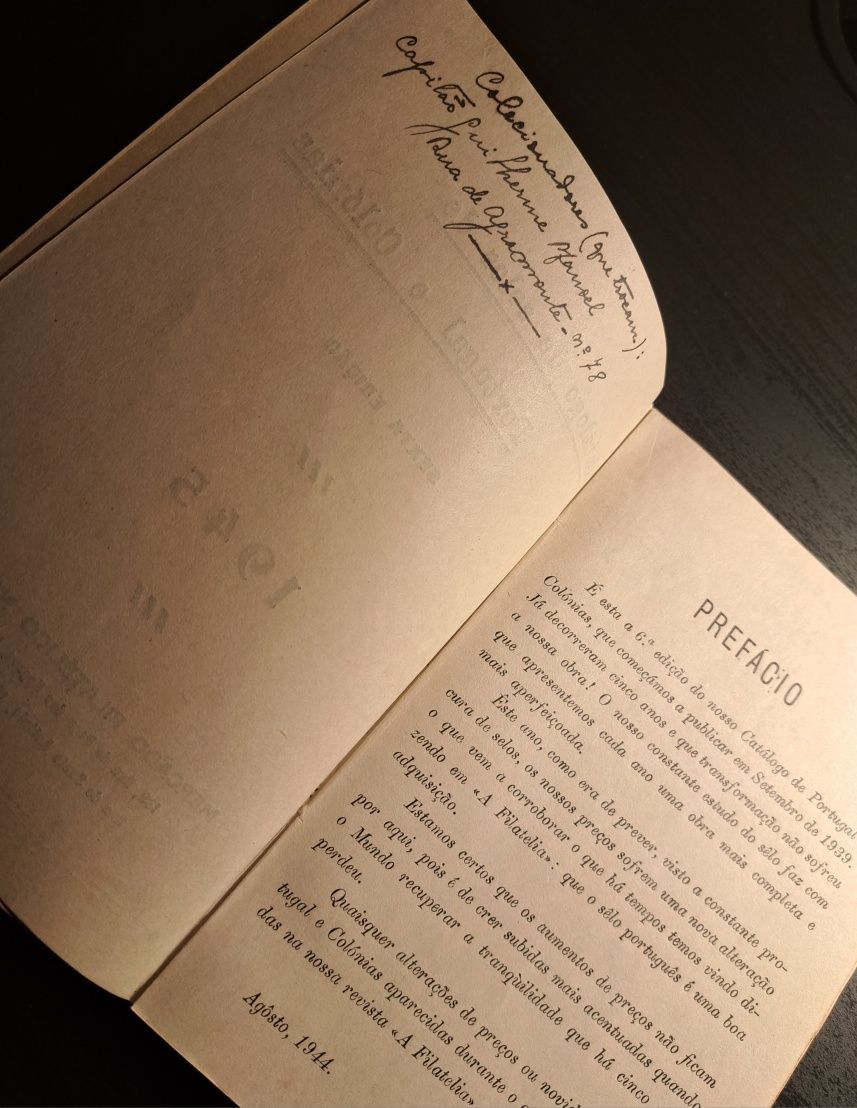 Colecionadores (que trocam):
Capitão Guilherme Manoel
Rua de Agramonte - nº 78
PREFÁCIO
É esta a 6.ª edição do nosso Catálogo de Portugal
Colónias, que começámos a publicar em Setembro de 1939.
Já decorreram cinco anos e que transformação não sofreu
a nossa obra! O nosso constante estudo do sêlo faz com
que apresentemos cada ano uma obra mais completa e
mais aperfeiçoada.
Êste ano, como era de prever, visto a constante pro-
cura de selos, os nossos preços sofrem uma nova alteração
o que vem a corroborar o que há tempos temos vindo di-
zendo em «A Filatelia»: que o sêlo português é uma boa
adquisição.
Estamos certos que os aumentos de preços não ficam
por aqui, pois é de crer subidas mais acentuadas quando
o Mundo recuperar a tranqüilidade que há cinco
perdeu.
Quaisquer alterações de preços ou novid
tugal e Colónias aparecidas durante o
das na nossa revista «A Filatelia»
Agôsto, 1944.
SEXTA EDIÇÃO
1945